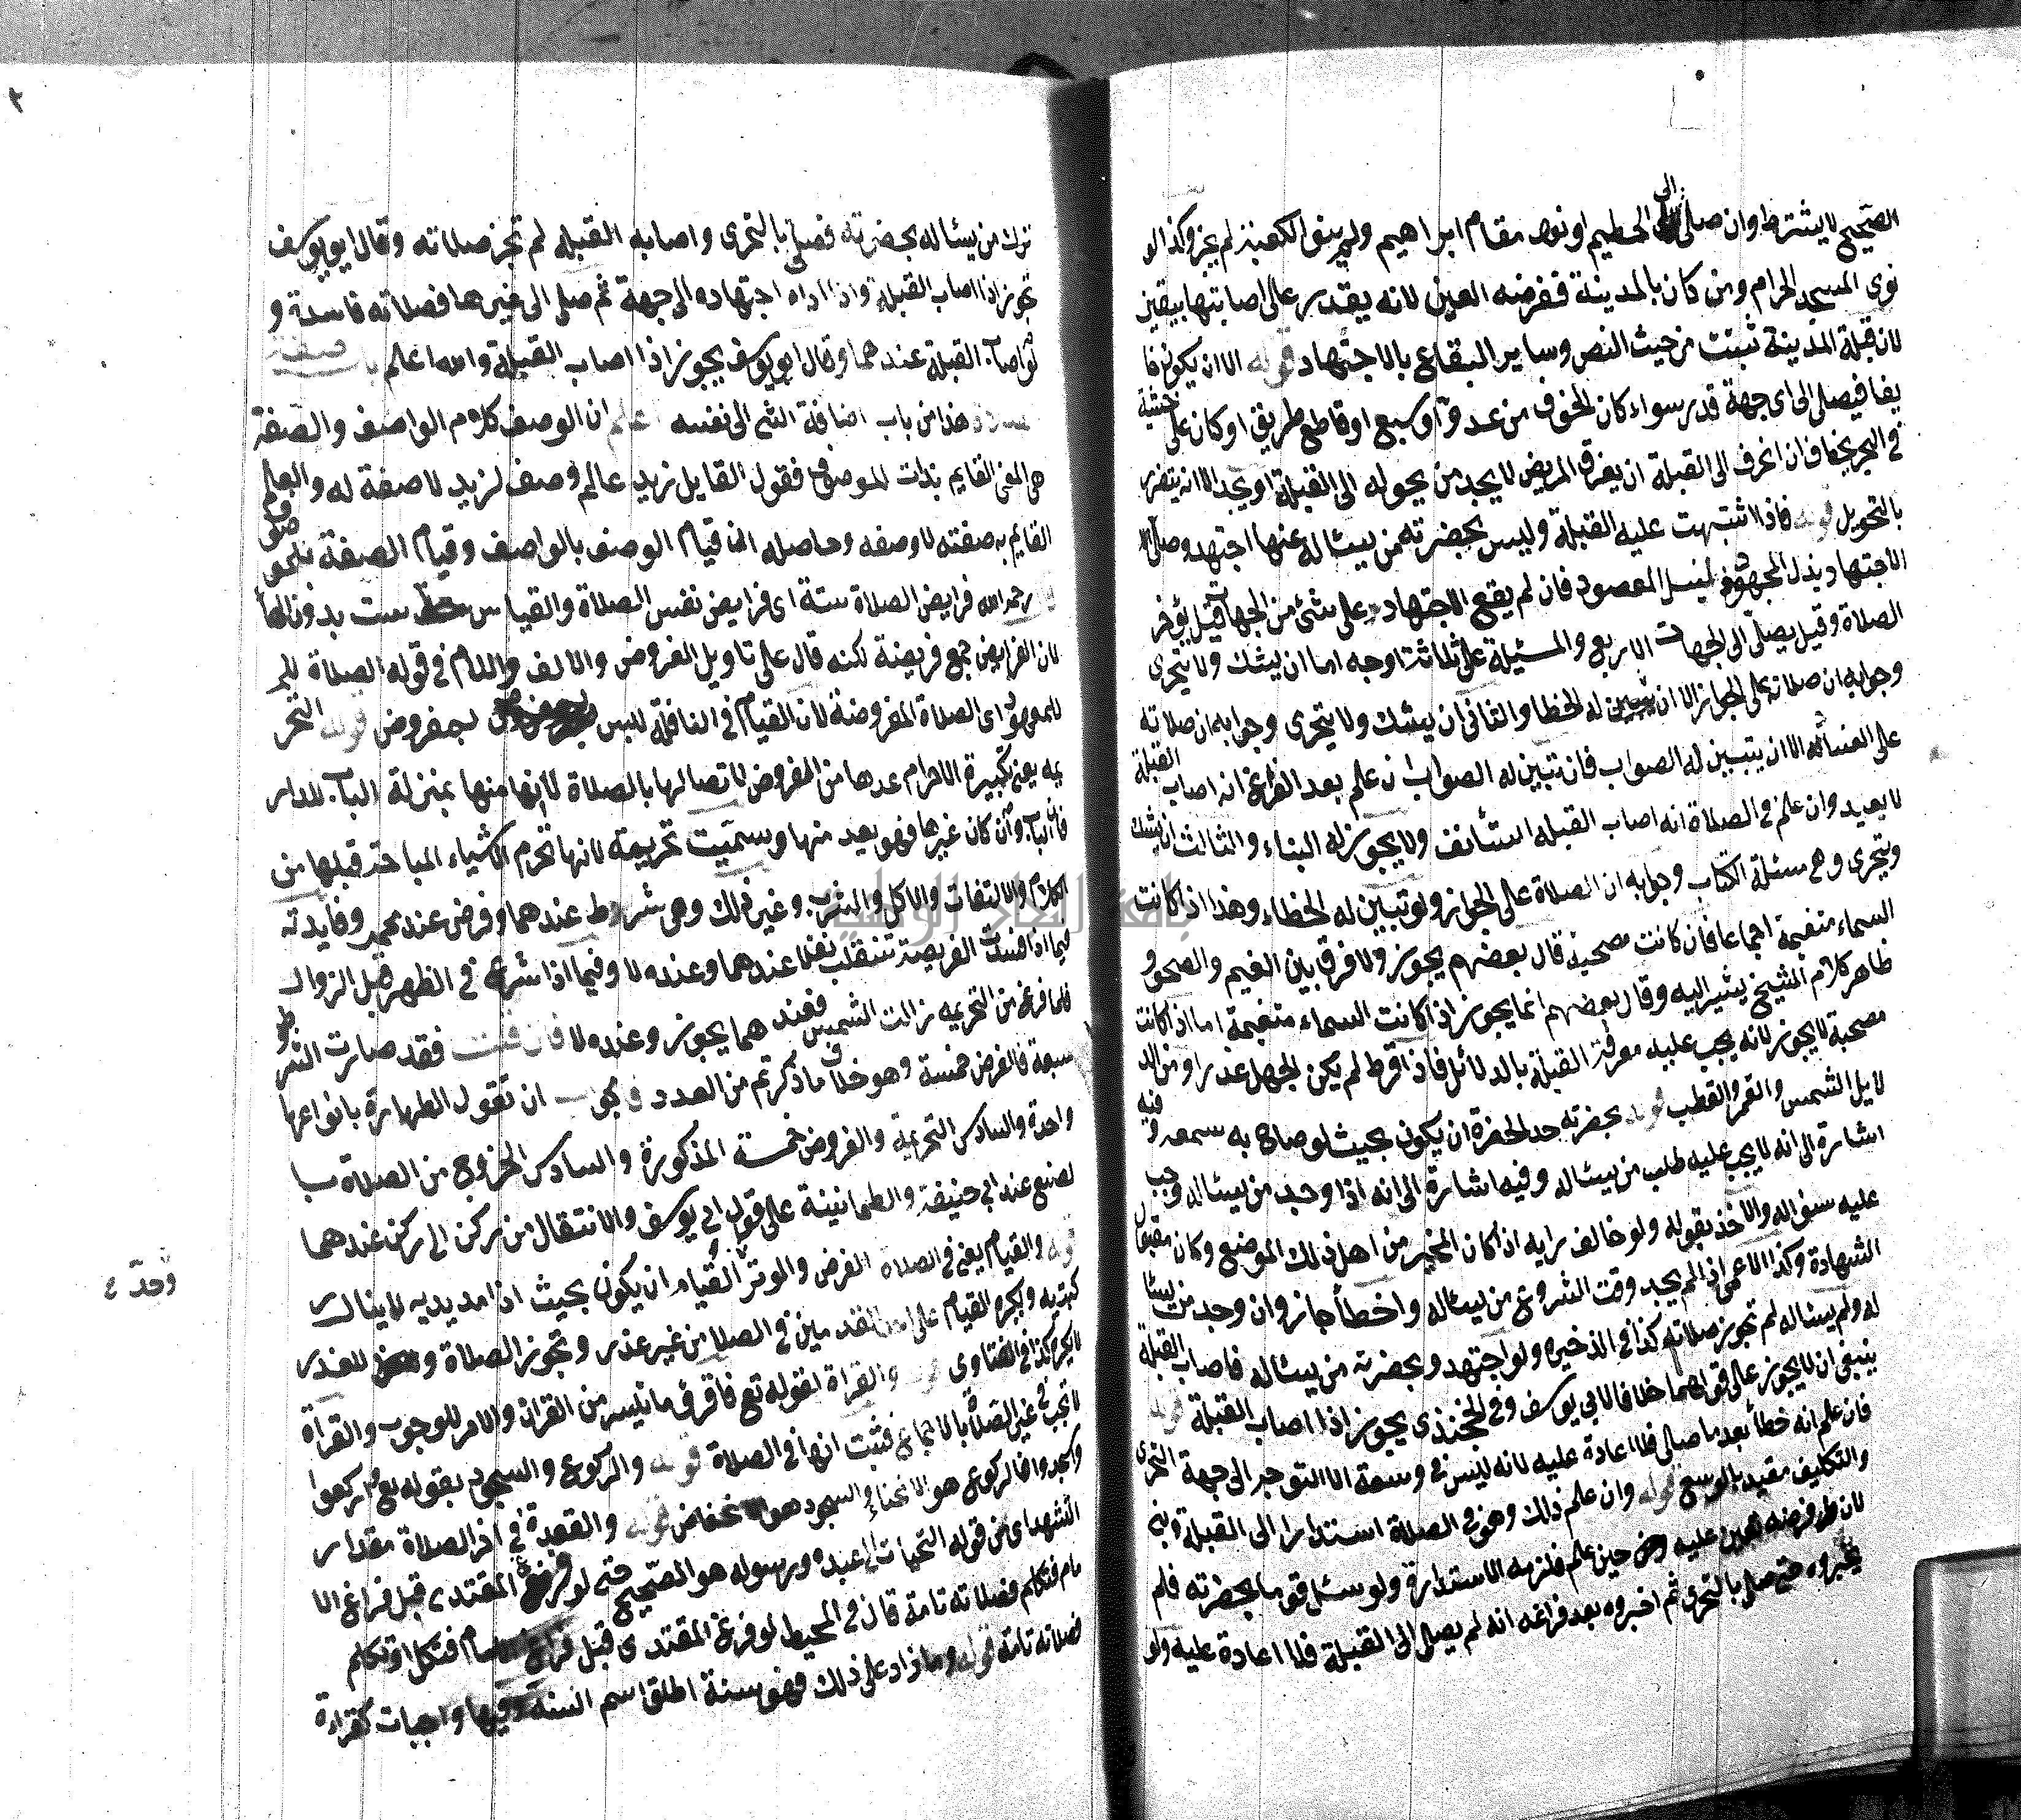 الصحيح لا يشترط وان صلى الى الحطيم او نوى مقام ابراهيم ولم ينو الكعبة لم يجز وكذا لو
نوى المسجد الحرام ومن كان بالمدينة ففرضه العين لانه يقدر على اصابتها بيقين
لان قبلة المدينة تثبت من حيث النص وساير البقاع بالاجتهاد قوله الا ان يكون خا
يفا فيصلى الى اى جهة قدر سواء كان الخوف من عدو او سبع او قاطع طريق او كان على خشبة
في البحر يخاف ان انحرف الى القبلة ان يغرق المريض لا يجد من يحوله الى القبلة او يجد الا انه يتضرر
بالتحويل قوله فاذا اشتبهت عليه القبلة وليس بحضرته من يسئاله عنها اجتهد وصلى
الاجتهاد بذل المجهود لنيل المقصود فان لم يقع الاجتهاد على شئ من الجهات قيل يؤخر
الصلاة وقيل يصلى الى الجهات الاربع والمسئلة على ثلاثة اوجه اما ان يشك ولا يتحرى
وجوابه ان صلاته على الجواز الا ان يتبين له الخطا والثانى ان يشك ولا يتحرى وجوابه ان صلاته
على الفساد الا ان يتبين له الصواب فان تبين له الصواب ان علم بعد الفراغ انه اصاب القبلة
لا يعيد وان علم في الصلاة انه اصاب القبله استئانف ولا يجوز له البناء والثالث ان يشك
ويتحرى وهى مسئلة الكتاب وجوابه ان الصلاة على الجواز ولو تبين له الخطاء وهذا اذا كانت
السماء متغيمة اجماعا فان كانت مصحية قال بعضهم يجوز ولا فرق بين الغيم والصحو و
ظاهر كلام الشيخ يشير اليه وقال بعضهم انما يجوز اذا كانت السماء متغيمة اما اذا كانت
مصحية لا يجوز لانه يجب عليه معرفة القبلة بالدلائل فاذا فرط لم يكن الجهل عذرا ومن الد
لايل الشمس والقمر والقطب قوله بحضرته حد الحضرة ان يكون بحيث لو صاح به سمعه وفيه
اشارة الى انه لا يجب عليه طلب من يسئاله وفيه اشارة الى انه اذا وجد من يسئاله وجب
عليه سؤاله والاخذ بقوله ولو خالف رايه اذا كان المخبر من اهل ذلك الموضع وكان مقبول
الشهادة وكذا الاعمى اذا لم يجد وقت الشروع من يسئاله واخطأ جاز وان وجد من يسئا
له ولم يسئاله لم تجوز صلاته كذا في الذخيره ولو اجتهد وبحضرته من يسئاله فاصاب القبلة
ينبغى ان لا يجوز على قولهما خلافا لابي يوسف وفي الخجندى يجوز اذا اصاب القبلة قوله
فان علم انه خطأ بعد ما صلى فلا اعادة عليه لانه ليس في وسعه الا التوجه الى جهة التحرى
والتكليف مقيد بالوسع قوله وان علم ذلك وهو في الصلاة استدار الى القبلة وبنى
لان فرضه تعين عليه حين علم فلزمه الاستدارة ولو سئل قوما بحضرته فلم
يخبروه حتى صلى بالتحرى ثم اخبروه بعد فراغه انه لم يصل الى القبلة فلا اعادة عليه ولو
٣
ترك من يسئاله بحضرته فصلى بالتحرى واصابه القبله لم تجز صلاته وقال ابو يوسف
تجوز اذا اصاب القبلة واذا اداه اجتهاده الى جهة ثم صلى الى غيرها فصلاته فاسدة و
لو اصاب القبلة عندهما وقال ابو يوسف يجوز اذا اصاب القبلة والله اعلم باب صفة
هذا من باب اضافة الشئ الى نفسه اعلم ان الوصف كلام الواصف والصفة
هى المعنى القايم بذات الموصوف فقول القايل زيد عالم وصف لزيد لا صفة له والعلم
القايم به صفته لا وصفه وحاصله ان قيام الوصف بالواصف وقيام الصفة بالموصوف
رحمه الله فرايض الصلاة ستة اى فرايض نفس الصلاة والقياس ست بدون الها
لان الفرايض جمع فريضة لكنه قال على تاويل الفروض والالف واللام في قوله الصلاة
للمعهود اى الصلاة المفروضة لان القيام في النافلة ليس بمفروض قوله التحر
يمه يعنى تكبيرة الاحرام عدها من الفروض لاتصالها بالصلاة لانها منها بمنزلة الباب للدار
فان الباب وان كان غيرها فهو يعد منها وسميت تحريمة لانها تحرم الاشياء المباحة قبلها من
الكلام والالتفات والاكل والشرب وغير ذلك وهى شرط عندهما وفرض عند محمد وفايدته
فيما اذا فسدت الفريضة تنقلب نفلا عندهما وعنده لا وفيما اذا شرع في الظهر قبل الزوال
فلما فرغ من التحريمه زالت الشمس فعندهما يجوز وعنده لا فان قلت فقد صارت الشر
سبعة فالفرض خمسة وهو خلاف ما ذكرتم من العدد فالجواب ان تقول الطهارة بانواعها
واحدة والسادس التحريمة والفروض خمسة المذكورة والسادس الخروج من الصلاة
لصنع عند ابى حنيفة والطمانينة على قول ابي يوسف والانتقال من ركن الى ركن عندهما
قوله والقيام يعنى في الصلاة الفرض والوتر القيام ان يكون بحيث اذا مد يديه لا ينال
ركبتيه ويكره القيام على احد القدمين في الصلاة من غير عذر وتجوز الصلاة وللعذر
لا يكره كذا في الفتاوى قوله والقراة لقوله تع فاقرؤا ما تيسر من القران والامر للوجوب والقراة
لا تجب في غير الصلاة بالاجماع فثبت انها في الصلاة قوله والركوع والسجود بقوله تع اركعوا
واسجدوا فالركوع هو الانحناء والسجود هو الانخفاض قوله والقعدة في اخر الصلاة مقدار
التشهد اى من قوله التحيات الى عبده ورسوله هو الصحيح حتى لو فرغ المقتدى قبل فراغ الا
مام فتكلم فصلاته تامة قال في المحيط لو فرغ المقتدى قبل فراغ الامام فتكلم
فصلاته تامة قوله وما زاد على ذلك فهو سنة اطلق اسم السنة وفيها واجبات كقراءة